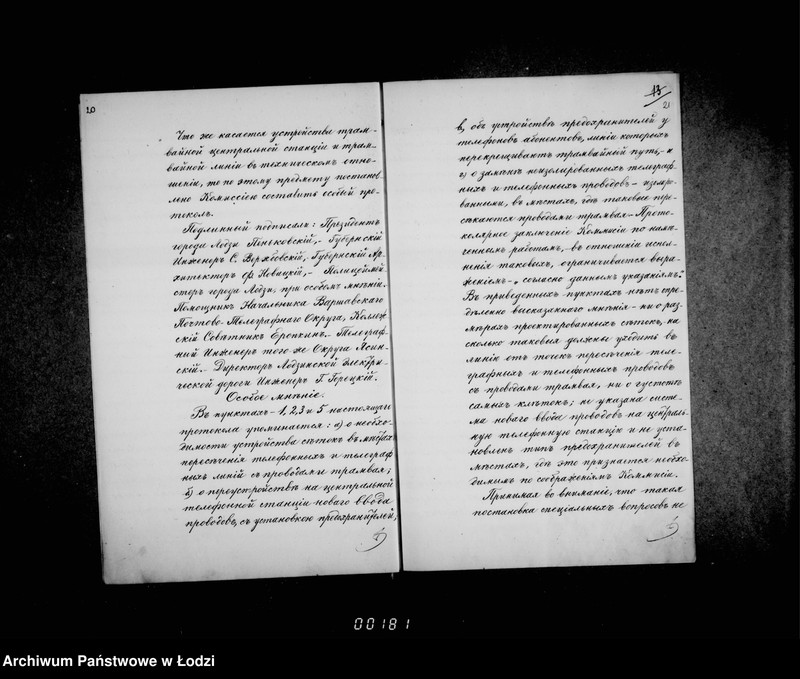 20
Что же касается устройства трам-
вайной центральной станціи и трам-
вайной линіи въ техническомъ отно-
шеніи, то по этому предмету постанов-
лено Комиссіею составить особый про-
токолъ.
Подлинный подписали: Президентъ
города Лодзи Пеньковскій,- Губернскій
Инженеръ С. Вержбовскій, Губернскій Ар-
хитекторъ Ф. Новицкій,- Полицеймей
стеръ города Лодзи, при особомъ мнѣніи
Помощникъ Начальника Варшавскаго
Почтово-Телеграфнаго Округа, Коллеж-
скій Совѣтникъ Еропкинъ.- Телеграф-
ный Инженеръ того же Округа Ясин-
скій.- Директоръ Лодзинской Электри-
ческой дороги Инженеръ Г. Герецкій.
Особое мнѣніе.
Въ пунктахъ- 1, 2, 3 и 5 настоящаго
протокола упоминается: а) о необхо-
димости устройства сѣтокъ въ мѣстахъ
пересѣченія телефонныхъ и телеграф
ныхъ линій съ проводами трамвая;
б) о переустройствѣ на центральной
телефонной станціи новаго ввода
проводовъ, съ установкою предохранителей,
21
в, объ устройствѣ предохранителей у
телефоновъ абонентовъ, линіи которыхъ
перекрещиваютъ трамвайный путь,- и
г) о замѣнѣ неизолированныхъ телеграф-
ныхъ и телефонныхъ проводовъ- изолиро-
ванными, въ мѣстахъ, гдѣ таковые пере-
сѣкаются проводами трамвая.- Прото-
колярное заключеніе Комисіи по намѣ-
ченнымъ работамъ,- въ отношеніи испол-
ненія таковыхъ, ограничивается выра-
женіемъ- „согласно даннымъ указаніямъ."
Въ приведенныхъ пунктахъ нѣтъ опре-
дѣленно высказаннаго мнѣнія- ни о раз-
мѣрахъ проектированныхъ сѣтокъ, на
сколько таковыя должны уходить въ
линію отъ точекъ пересѣченія теле-
графныхъ и телефонныхъ проводовъ
съ проводами трамвая, ни о густотѣ
самыхъ клѣтокъ; не указана систе-
ма новаго ввода проводовъ на централь-
ную телефонную станцію и не уста-
новленъ типъ предохранителей въ
мѣстахъ, гдѣ это признается необхо-
димымъ по соображеніямъ Комисіи.
Принимая во вниманіе, что такая
постановка спеціальныхъ вопросовъ не
00181
Archiwum Państwowe w Łodzi